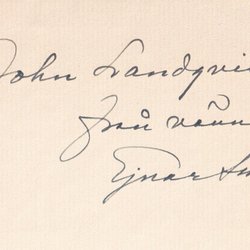 John Landqvi
från vänn
Ejnar Sm